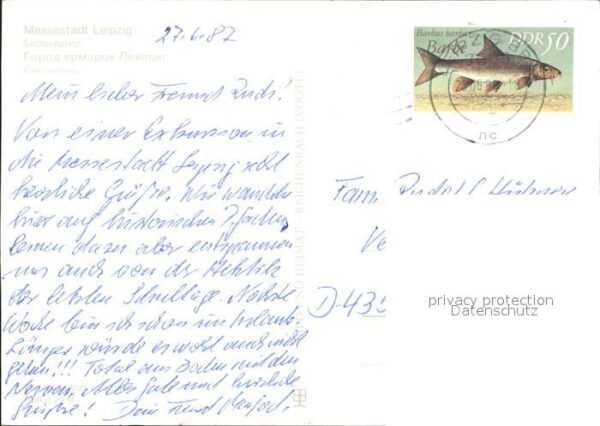 Messestadt Leipzig
Sachsenplatz
Город ярмарок Лейпциг
27.6.87
Barbus barbus
Barbe
DDR 50
Mein lieber Freund Rudi!
Von einer Exkursion in
die Messestadt Leipzig
herzliche Grüße. Wir wandeln
hier auf historischen Pfaden,
lernen dazu aber entspannen
uns auch von der Hektik
der letzten Schultage. Nächste
Woche bin ich schon im Urlaub.
Länger würde es wohl auch nicht
gehen!!! Total am Boden mit den
Nerven. Alles Gute und herzliche
Grüße! Dein Freund Manfred.
Fam. Rudolf
D-435
privacy protection
Datenschutz